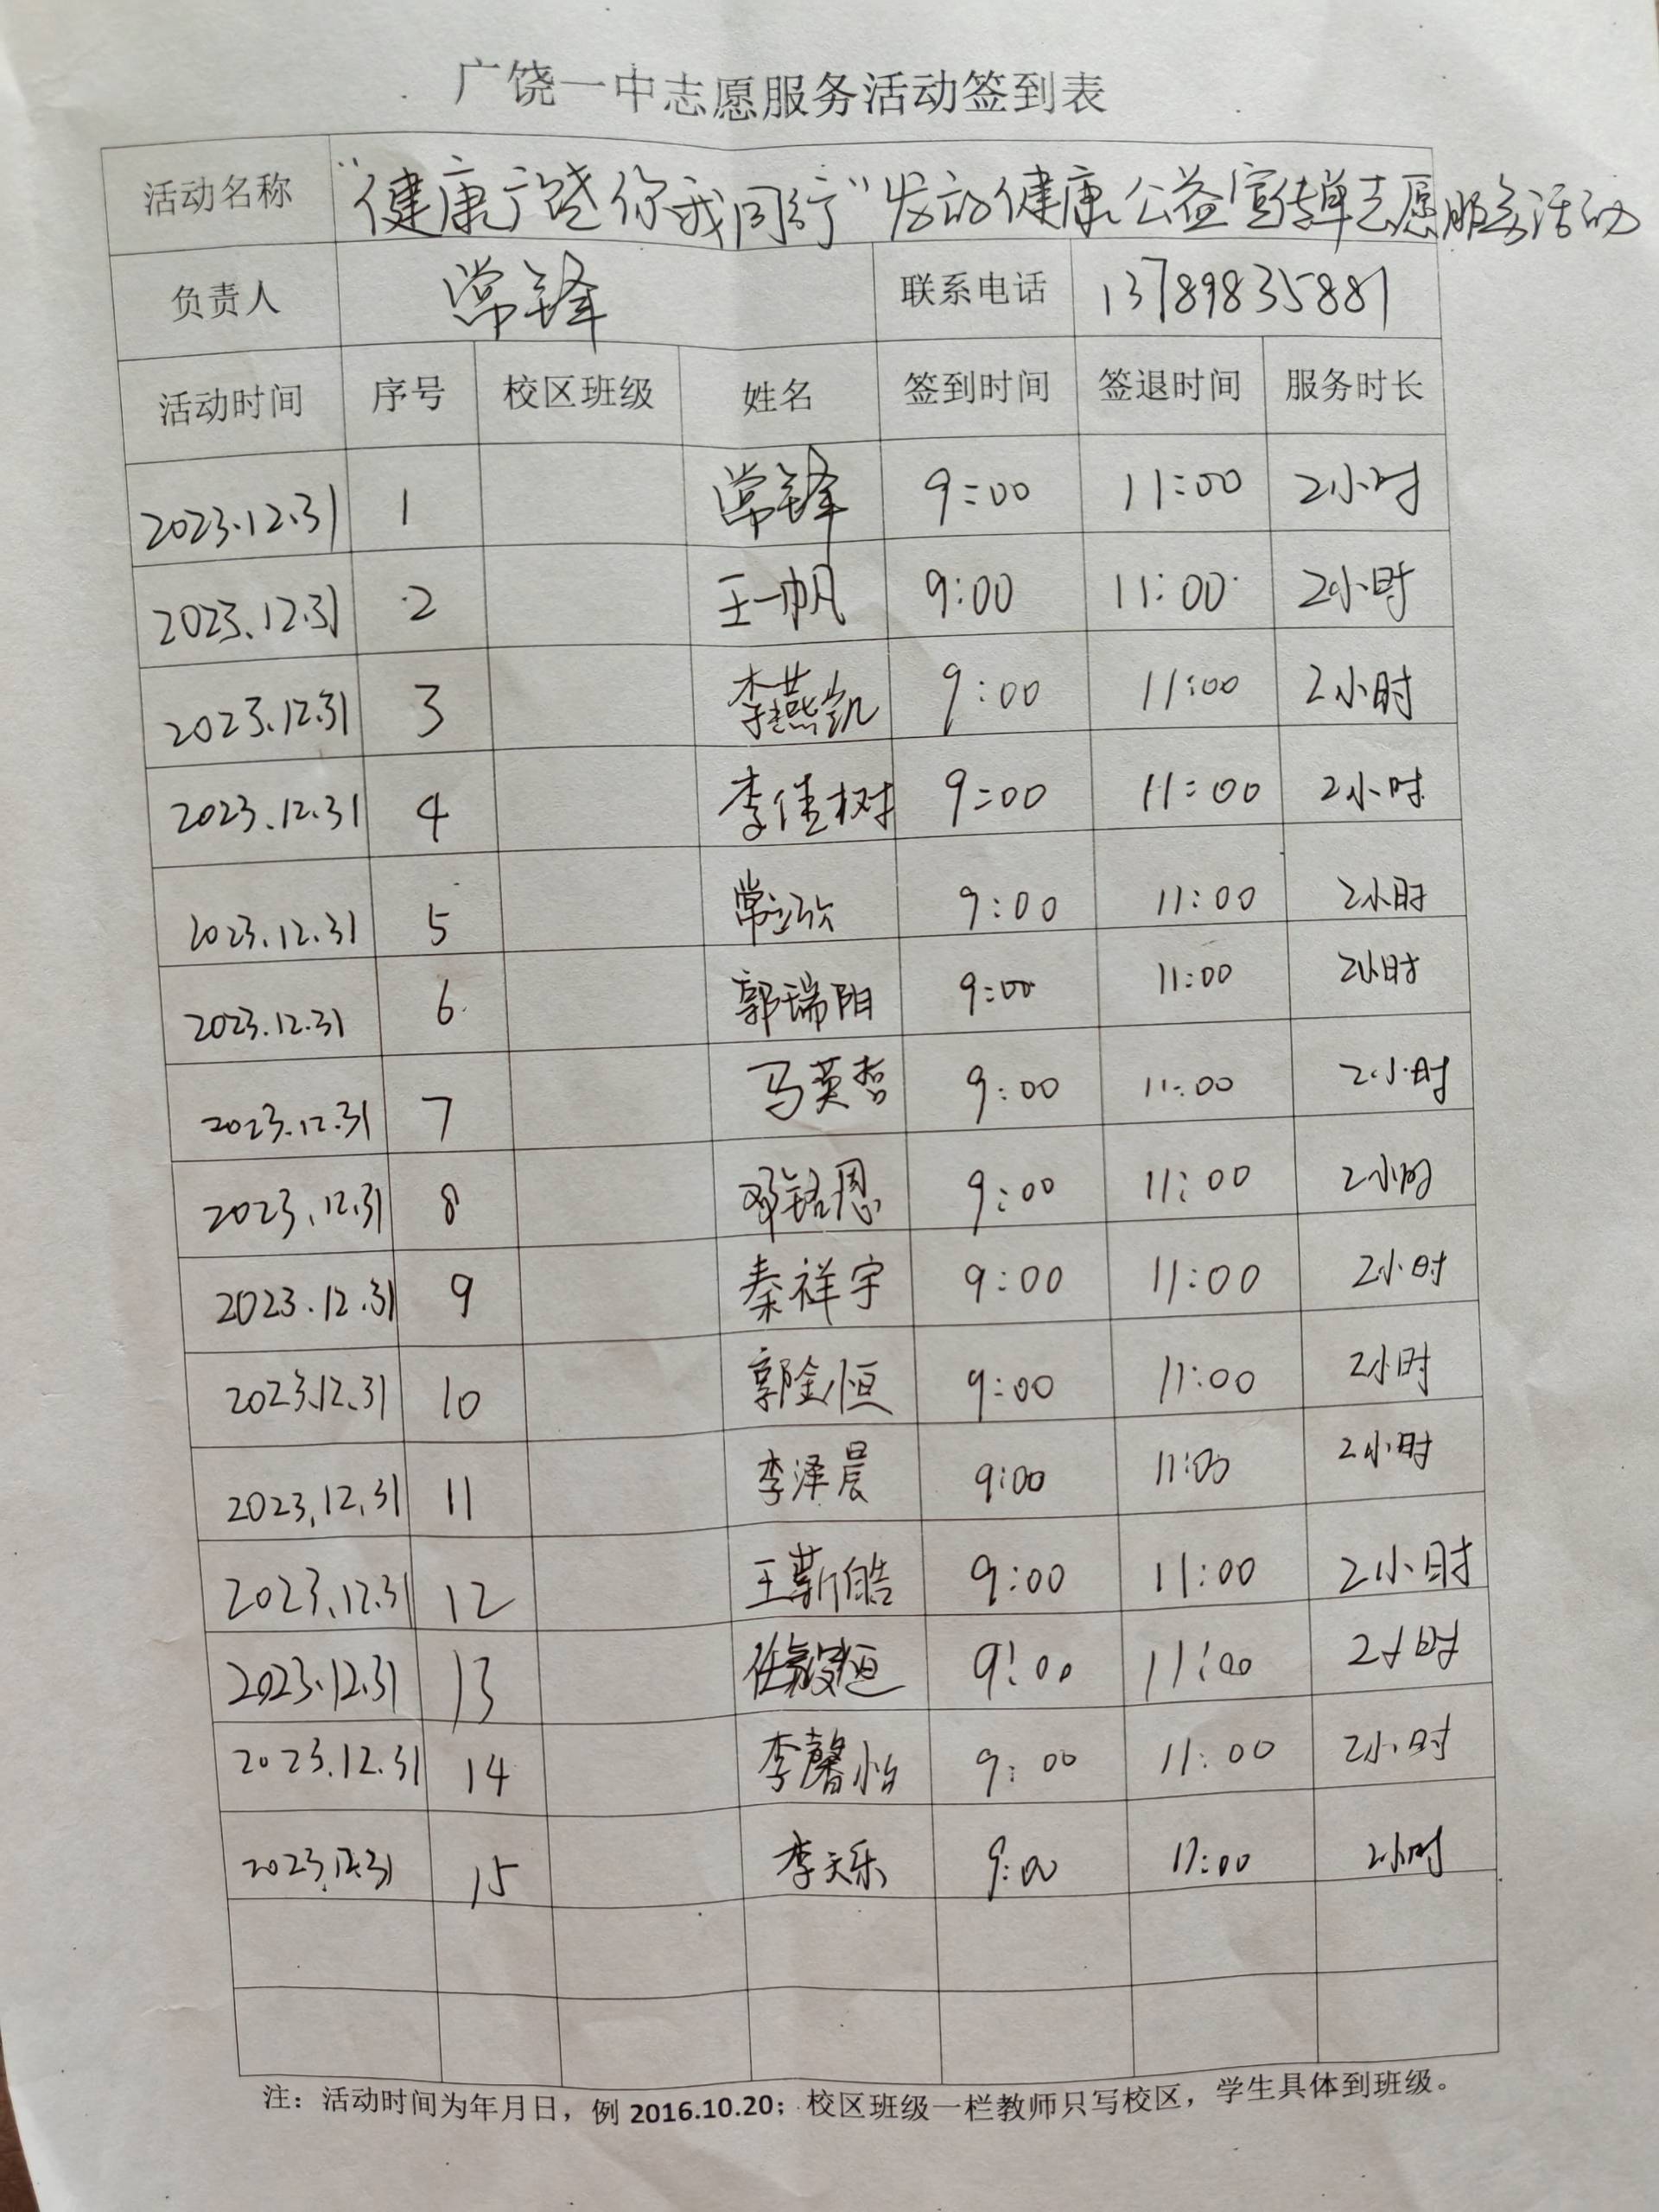 广饶一中志愿服务活动签到表
活动名称 “健康广饶你我同行”发动健康公益宣传单志愿服务活动
负责人 常锋 联系电话 13789835881
活动时间 序号 校区班级 姓名 签到时间 签退时间 服务时长
2023.12.31 1 常锋 9:00 11:00 2小时
2023.12.31 2 王一帆 9:00 11:00 2小时
2023.12.31 3 李燕凯 9:00 11:00 2小时
2023.12.31 4 李佳树 9:00 11:00 2小时
2023.12.31 5 常 9:00 11:00 2小时
2023.12.31 6 郭瑞阳 9:00 11:00 2小时
2023.12.31 7 马英哲 9:00 11:00 2小时
2023.12.31 8 邓铭恩 9:00 11:00 2小时
2023.12.31 9 秦祥宇 9:00 11:00 2小时
2023.12.31 10 郭金恒 9:00 11:00 2小时
2023.12.31 11 李泽晨 9:00 11:00 2小时
2023.12.31 12 王蕲皓 9:00 11:00 2小时
2023.12.31 13 任 9:00 11:00 2小时
2023.12.31 14 李馨怡 9:00 11:00 2小时
2023.12.31 15 李天乐 9:00 11:00 2小时
注：活动时间为年月日，例 2016.10.20；校区班级一栏教师只写校区，学生具体到班级。